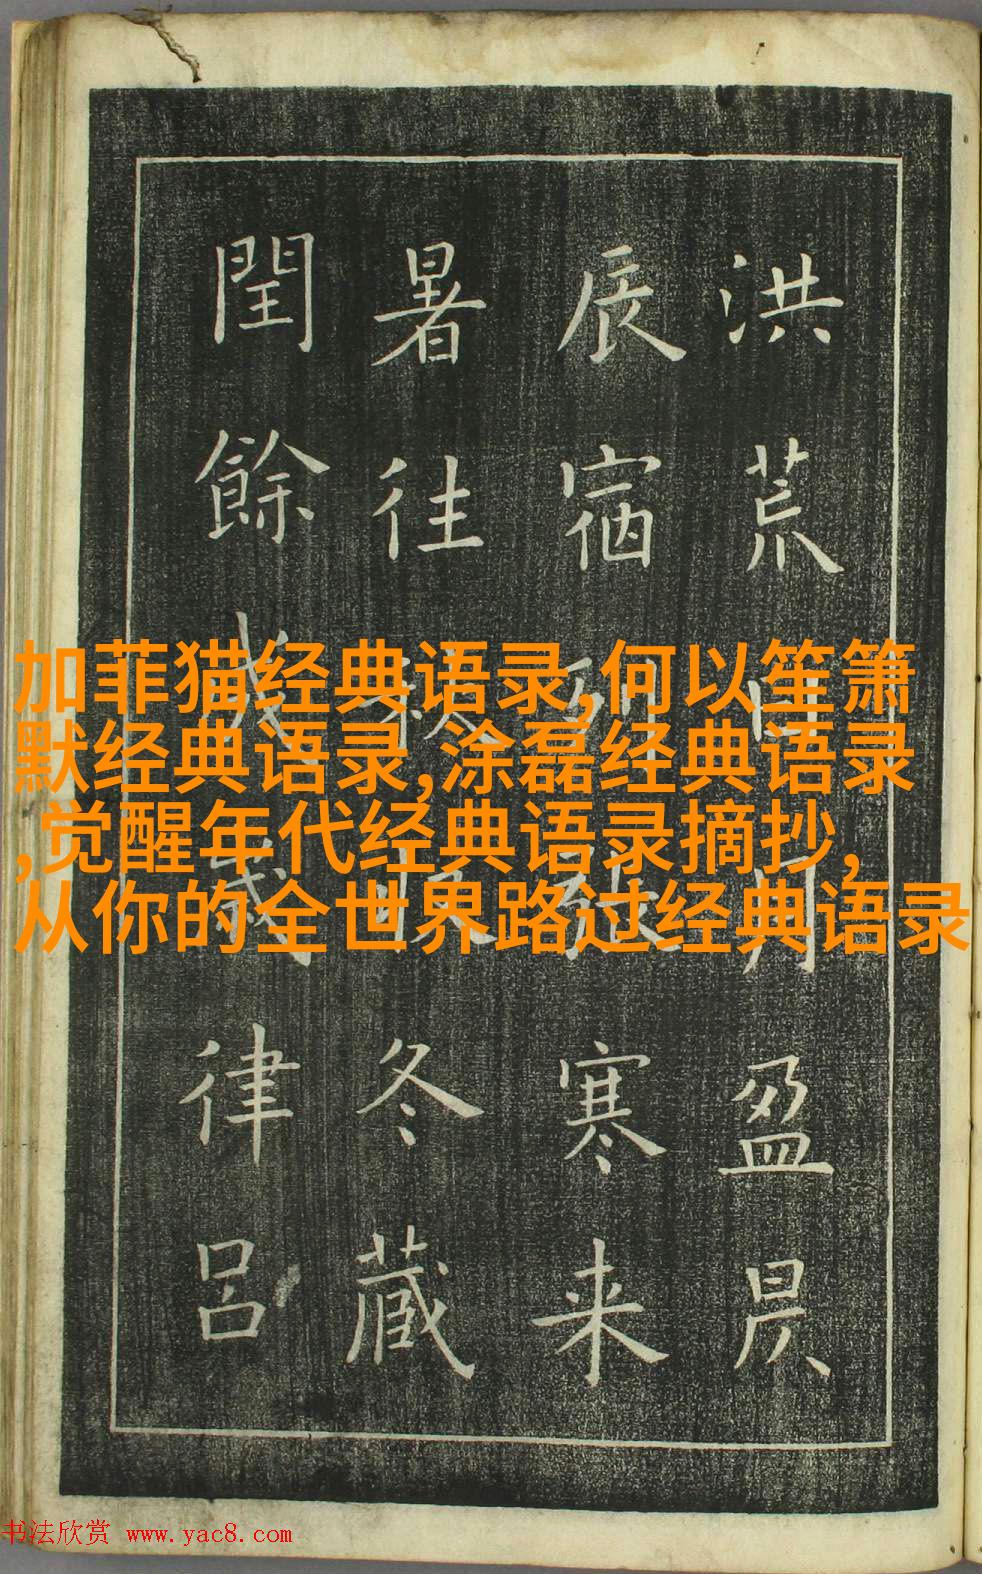 洪荒日月盈昃
辰宿列張寒来
暑往秋收冬藏
閏餘成歲律呂
加菲猫经典语录,何以笙箫
默经典语录,涂磊经典语录
,觉醒年代经典语录摘抄,
从你的全世界路过经典语录
书法欣赏 www.yac8.com